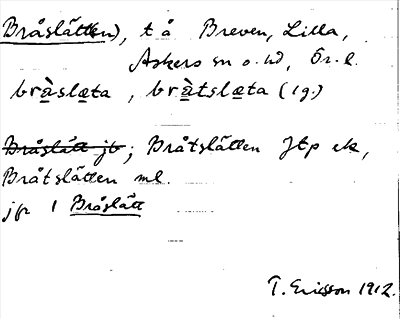 Bråslätten), t å Breven, Lilla,
Askers sn o. hd, Ör. l.
bràslæta, bràtslæta (1g.)
Bråslätt jb; Bråtslätten Jtp ek,
Bråtslätten ml.
jfr 1 Bråslätt
T. Ericsson 1912.